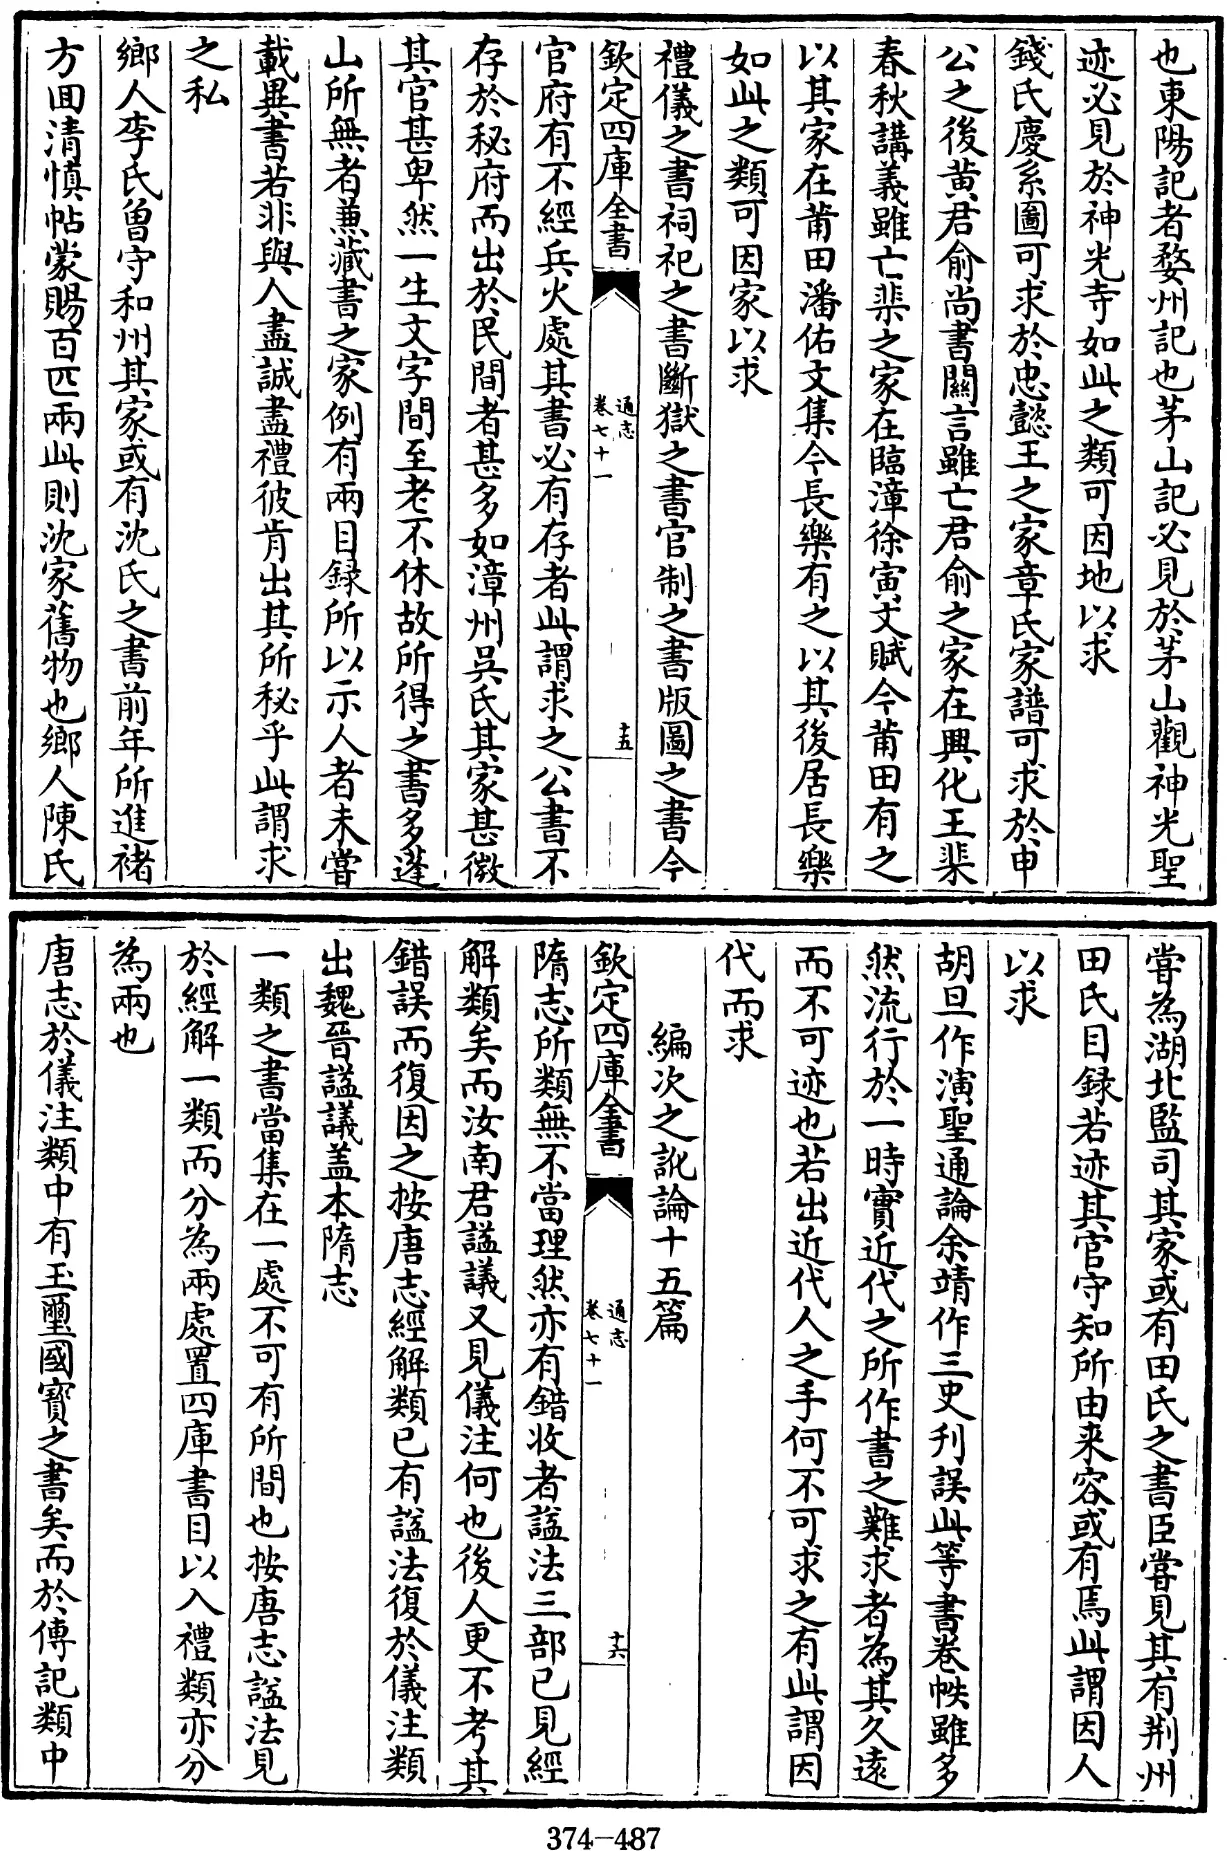 也東陽記者婺州記也茅山記必見於茅山觀神光聖
迹必見於神光寺如此之類可因地以求
錢氏慶系圖可求於忠懿王之家章氏家譜可求於申
公之後黄君俞尚書關言雖亡君俞之家在興化王棐
春秋講義雖亡棐之家在臨漳徐寅文賦今莆田有之
以其家在莆田潘佑文集今長樂有之以其後居長樂
如此之類可因家以求
禮儀之書祠祀之書斷獄之書官制之書版圖之書今
欽定四庫全書
通志
卷七十一
十五
官府有不經兵火處其書必有存者此謂求之公書不
存於秘府而出於民間者甚多如漳州吳氏其家甚微
其官甚卑然一生文字間至老不休故所得之書多蓬
山所無者兼藏書之家例有兩目録所以示人者未嘗
載異書若非與人盡誠盡禮彼肯出其所秘乎此謂求
之私
鄉人李氏曾守和州其家或有沈氏之書前年所進褚
方回清慎帖蒙賜百匹兩此則沈家舊物也鄉人陳氏
嘗為湖北監司其家或有田氏之書臣嘗見其有荆州
田氏目録若迹其官守知所由来容或有焉此謂因人
以求
胡旦作演聖通論余靖作三史刋誤此等書卷帙雖多
然流行於一時實近代之所作書之難求者為其久遠
而不可迹也若出近代人之手何不可求之有此謂因
代而求
編次之訛論十五篇
欽定四庫全書
通志
卷七十一
十六
隋志所類無不當理然亦有錯收者諡法三部已見經
解類矣而汝南君諡議又見儀注何也後人更不考其
錯誤而復因之按唐志經解類已有諡法復於儀注類
出魏晉諡議盖本隋志
一類之書當集在一處不可有所間也按唐志諡法見
於經解一類而分為兩處置四庫書目以入禮類亦分
為兩也
唐志於儀注類中有玉璽國寳之書矣而於傳記類中
374-487